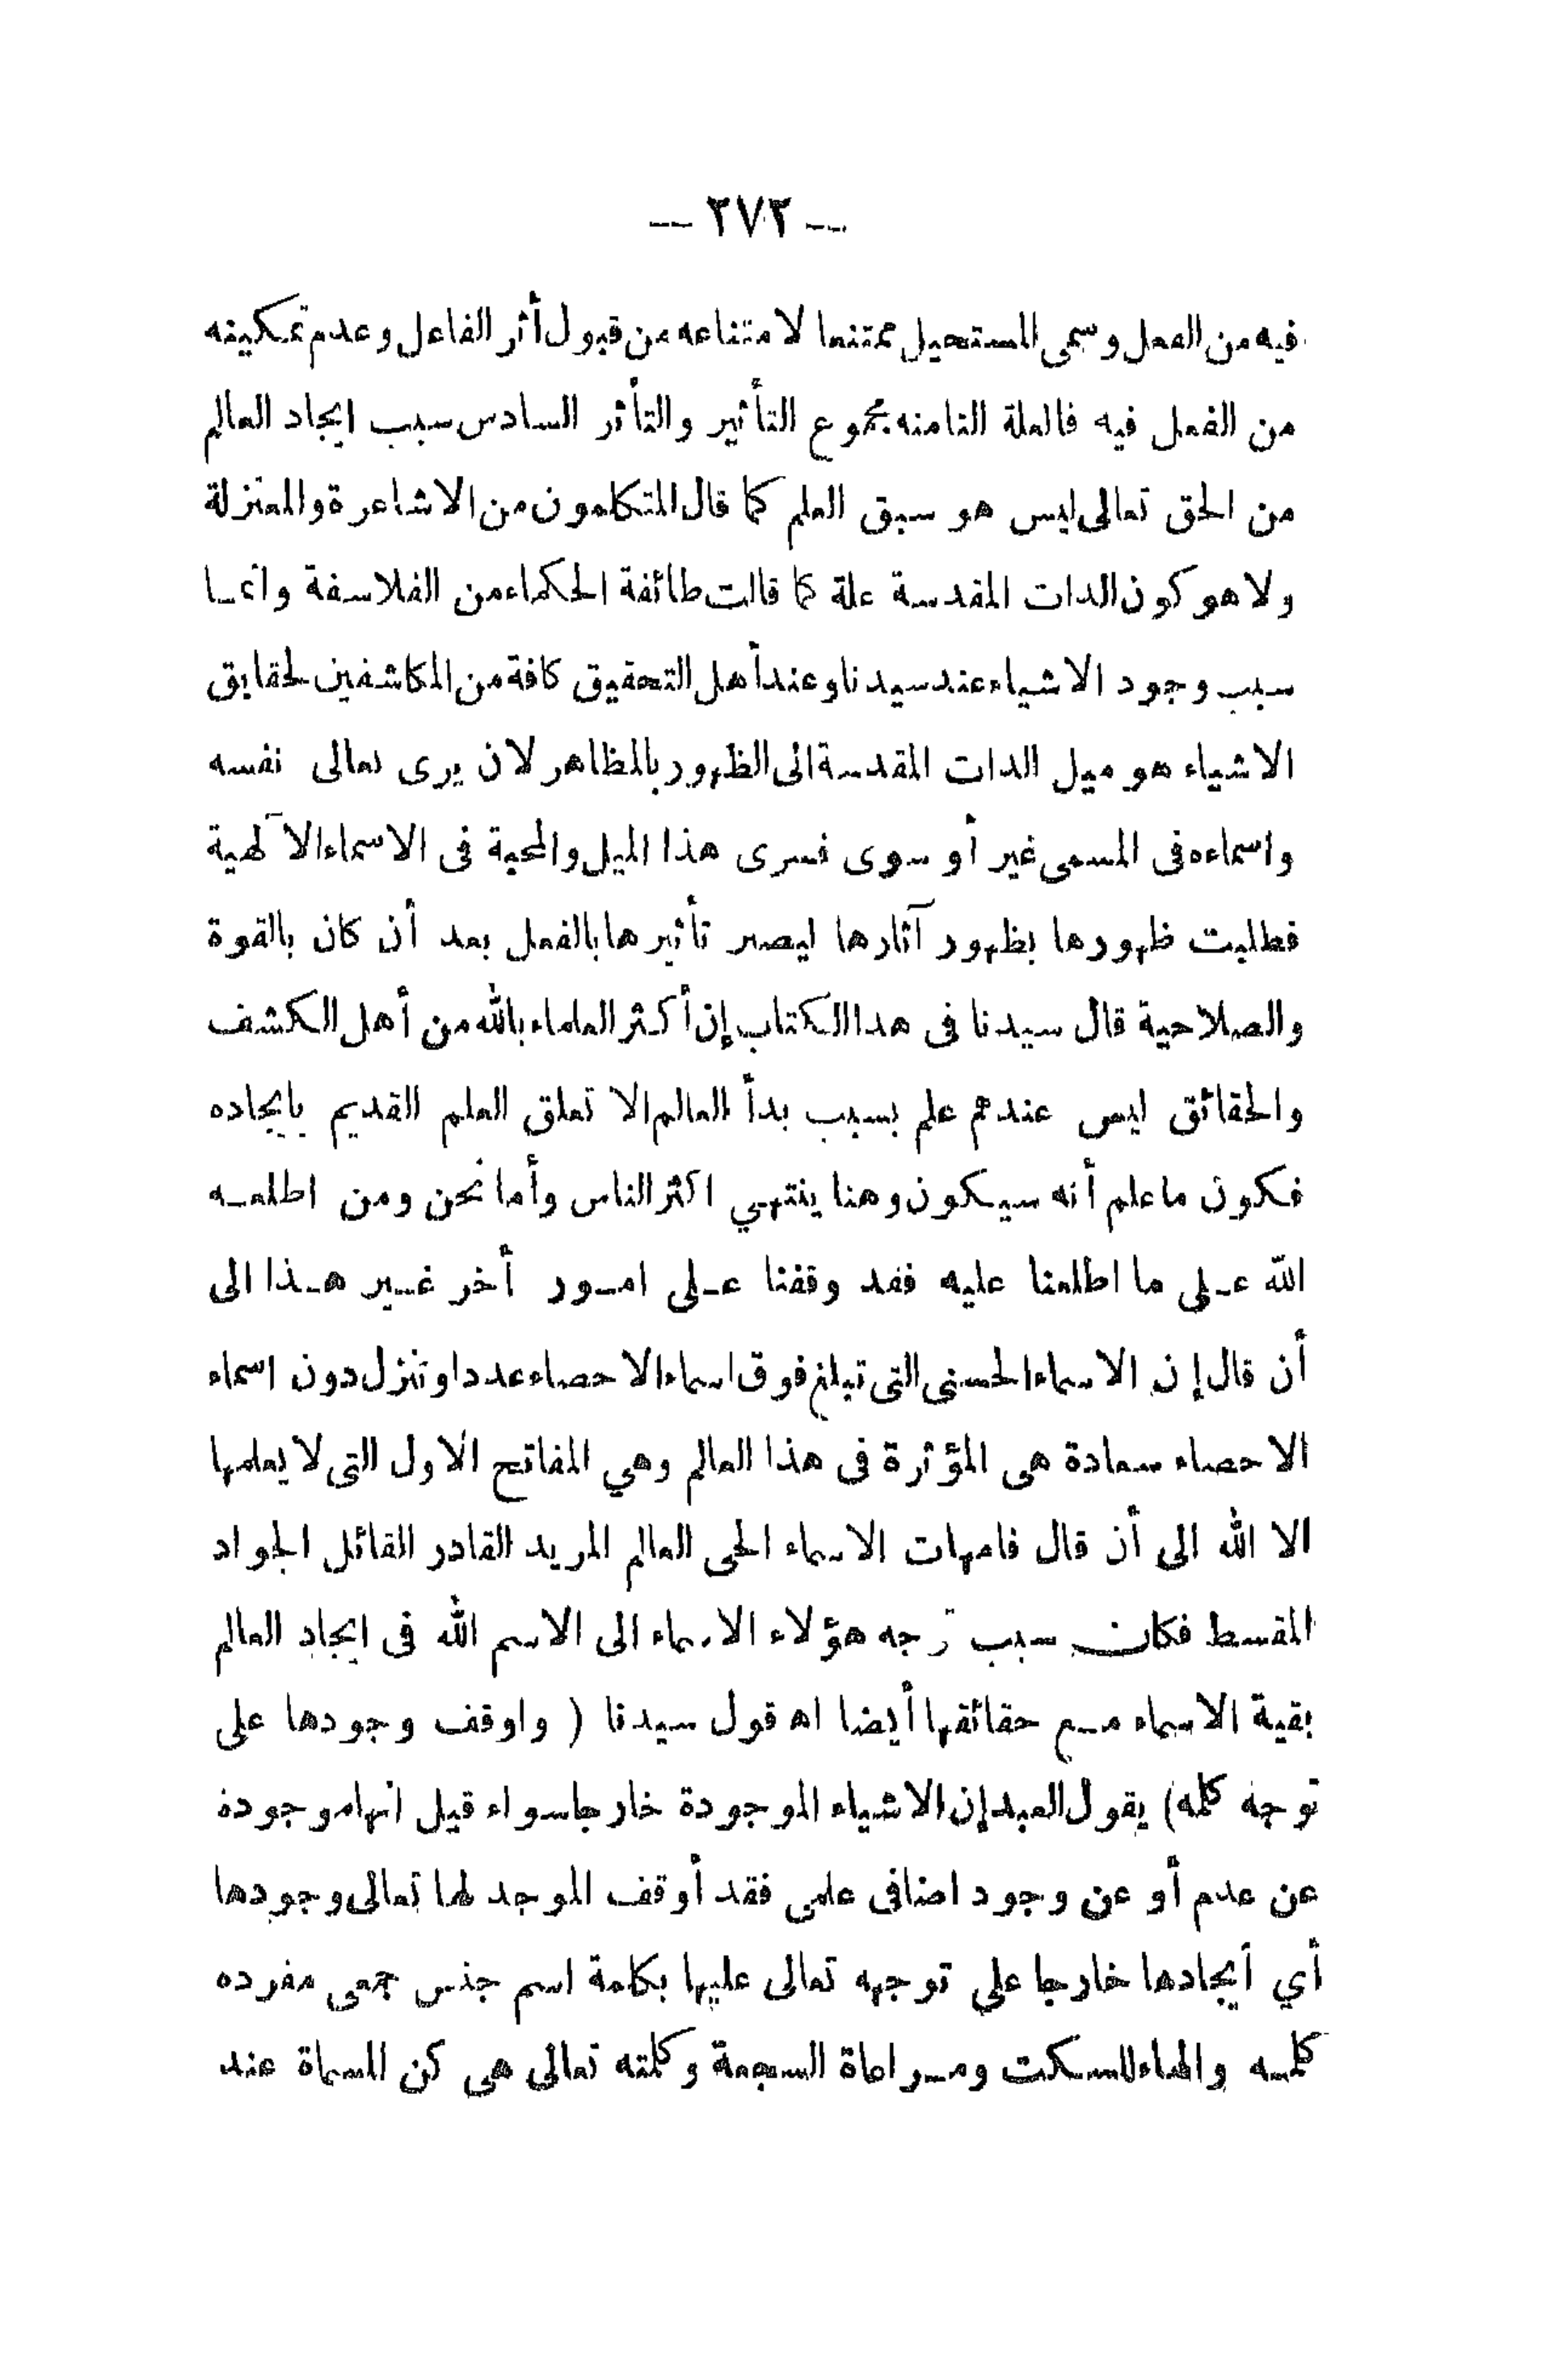 -- ٢٧٢ --
فيه من الفعل وسمى المستحيل ممتنعا لامتناعه من قبول أثر الفاعل وعدم تمكينه
من الفعل فيه فالعلة التامنه مجموع التأثير والتأثر السادس سبب ايجاد العالم
من الحق تعالى ليس هو سبق العلم كما قال المتكلمون من الاشاعرة والمعتزلة
ولا هو كون الدات المقدسة علة كما قالت طائفة الحكماء من الفلاسفة وانما
سبب وجود الاشياء عند سيدنا وعند أهل التحقيق كافة من المكاشفين لحقايق
الاشياء هو ميل الدات المقدسة الى الظهور بالمظاهر لان يرى تعالى نفسه
واسماءه فى المسمى غير أو سوى فسرى هذا الميل والمحبة فى الاسماء الآلهية
فطلبت ظهورها بظهور آثارها ليصير تأثيرها بالفعل بعد أن كان بالقوة
والصلاحية قال سيدنا فى هدا الكتاب إن أكثر العلماء بالله من أهل الكشف
والحقائق ليس عندهم علم بسبب بدأ العالم الا تعلق العلم القديم بايجاده
فكون ما علم أنه سيكون وهنا ينتهي اكثر الناس وأما نحن ومن اطلعه
الله على ما اطلعنا عليه فقد وقفنا على امور أخر غير هذا الى
أن قال إن الاسماء الحسنى التى تبلغ فوق اسماء الاحصاء عددا وتنزل دون اسماء
الاحصاء سعادة هى المؤثرة فى هذا العالم وهي المفاتح الاول التى لا يعلمها
الا الله الى أن قال فامهات الاسماء الحى العالم المريد القادر القائل الجواد
المقسط فكان سبب توجه هؤلاء الاسماء الى الاسم الله فى ايجاد العالم
بقية الاسماء مع حقائقها أيضا اه قول سيدنا ( واوقف وجودها على
توجه كلمه) يقول العبد إن الاشياء الموجودة خارجا سواء قيل انها موجودة
عن عدم أو عن وجود اضافى علمى فقد أوقف الموجد لها تعالى وجودها
أي أيجادها خارجا على توجهه تعالى عليها بكلمة اسم جنس جمعى مفرده
كلمه والهاء للسكت ومراعاة السجعة وكلمته تعالى هى كن المسماة عند